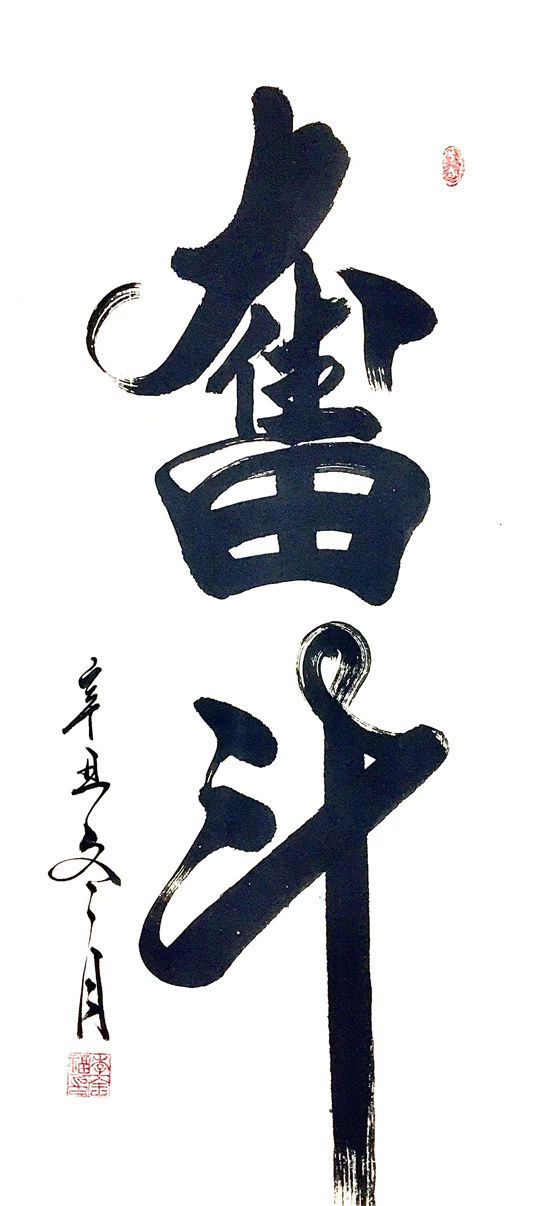 奮斗
辛丑冬月